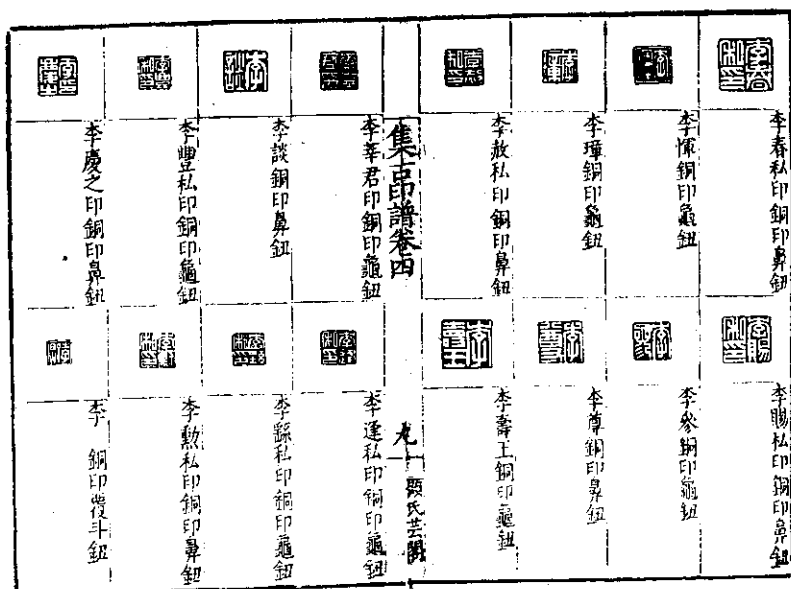 李春私印銅印鼻鈕
李惲銅印龜鈕
李璋銅印龜鈕
李赦私印銅印鼻鈕
李賜私印銅印鼻鈕
李參銅印龜鈕
李尊銅印鼻鈕
李壽王銅印龜鈕
集古印譜卷四
九
顧氏芸閣
李莘君印銅印龜鈕
李談銅印鼻鈕
李豐私印銅印龜鈕
李慶之印銅印鼻鈕
李逢私印銅印龜鈕
李繇私印銅印龜鈕
李勲私印銅印鼻鈕
李 銅印覆斗鈕